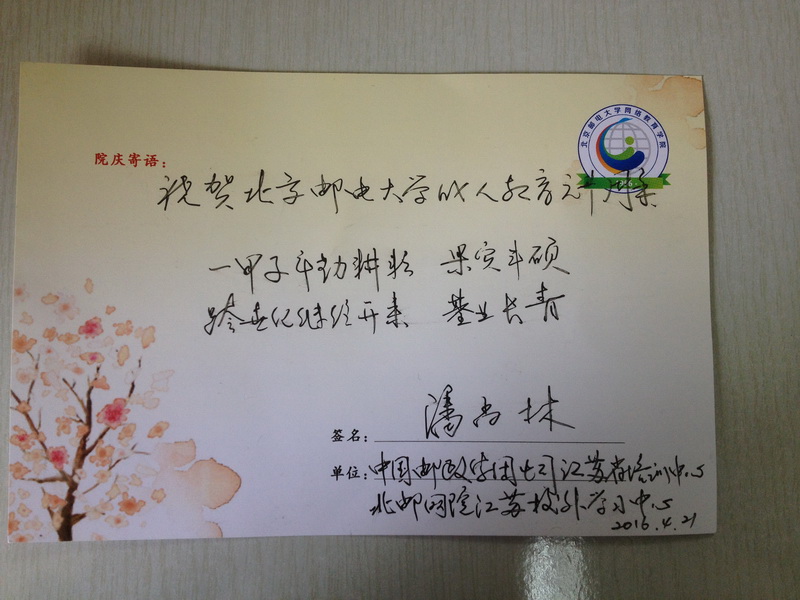 北京邮电大学网络教育学院
院庆寄语：
祝贺北京邮电大学成人教育六十周年
一甲子辛勤耕耘 果实丰硕
跨世纪继往开来 基业长青
签名： 潘尚林
单位：中国邮政集团公司江苏省培训中心
北邮网院江苏校外学习中心
2016.4.21